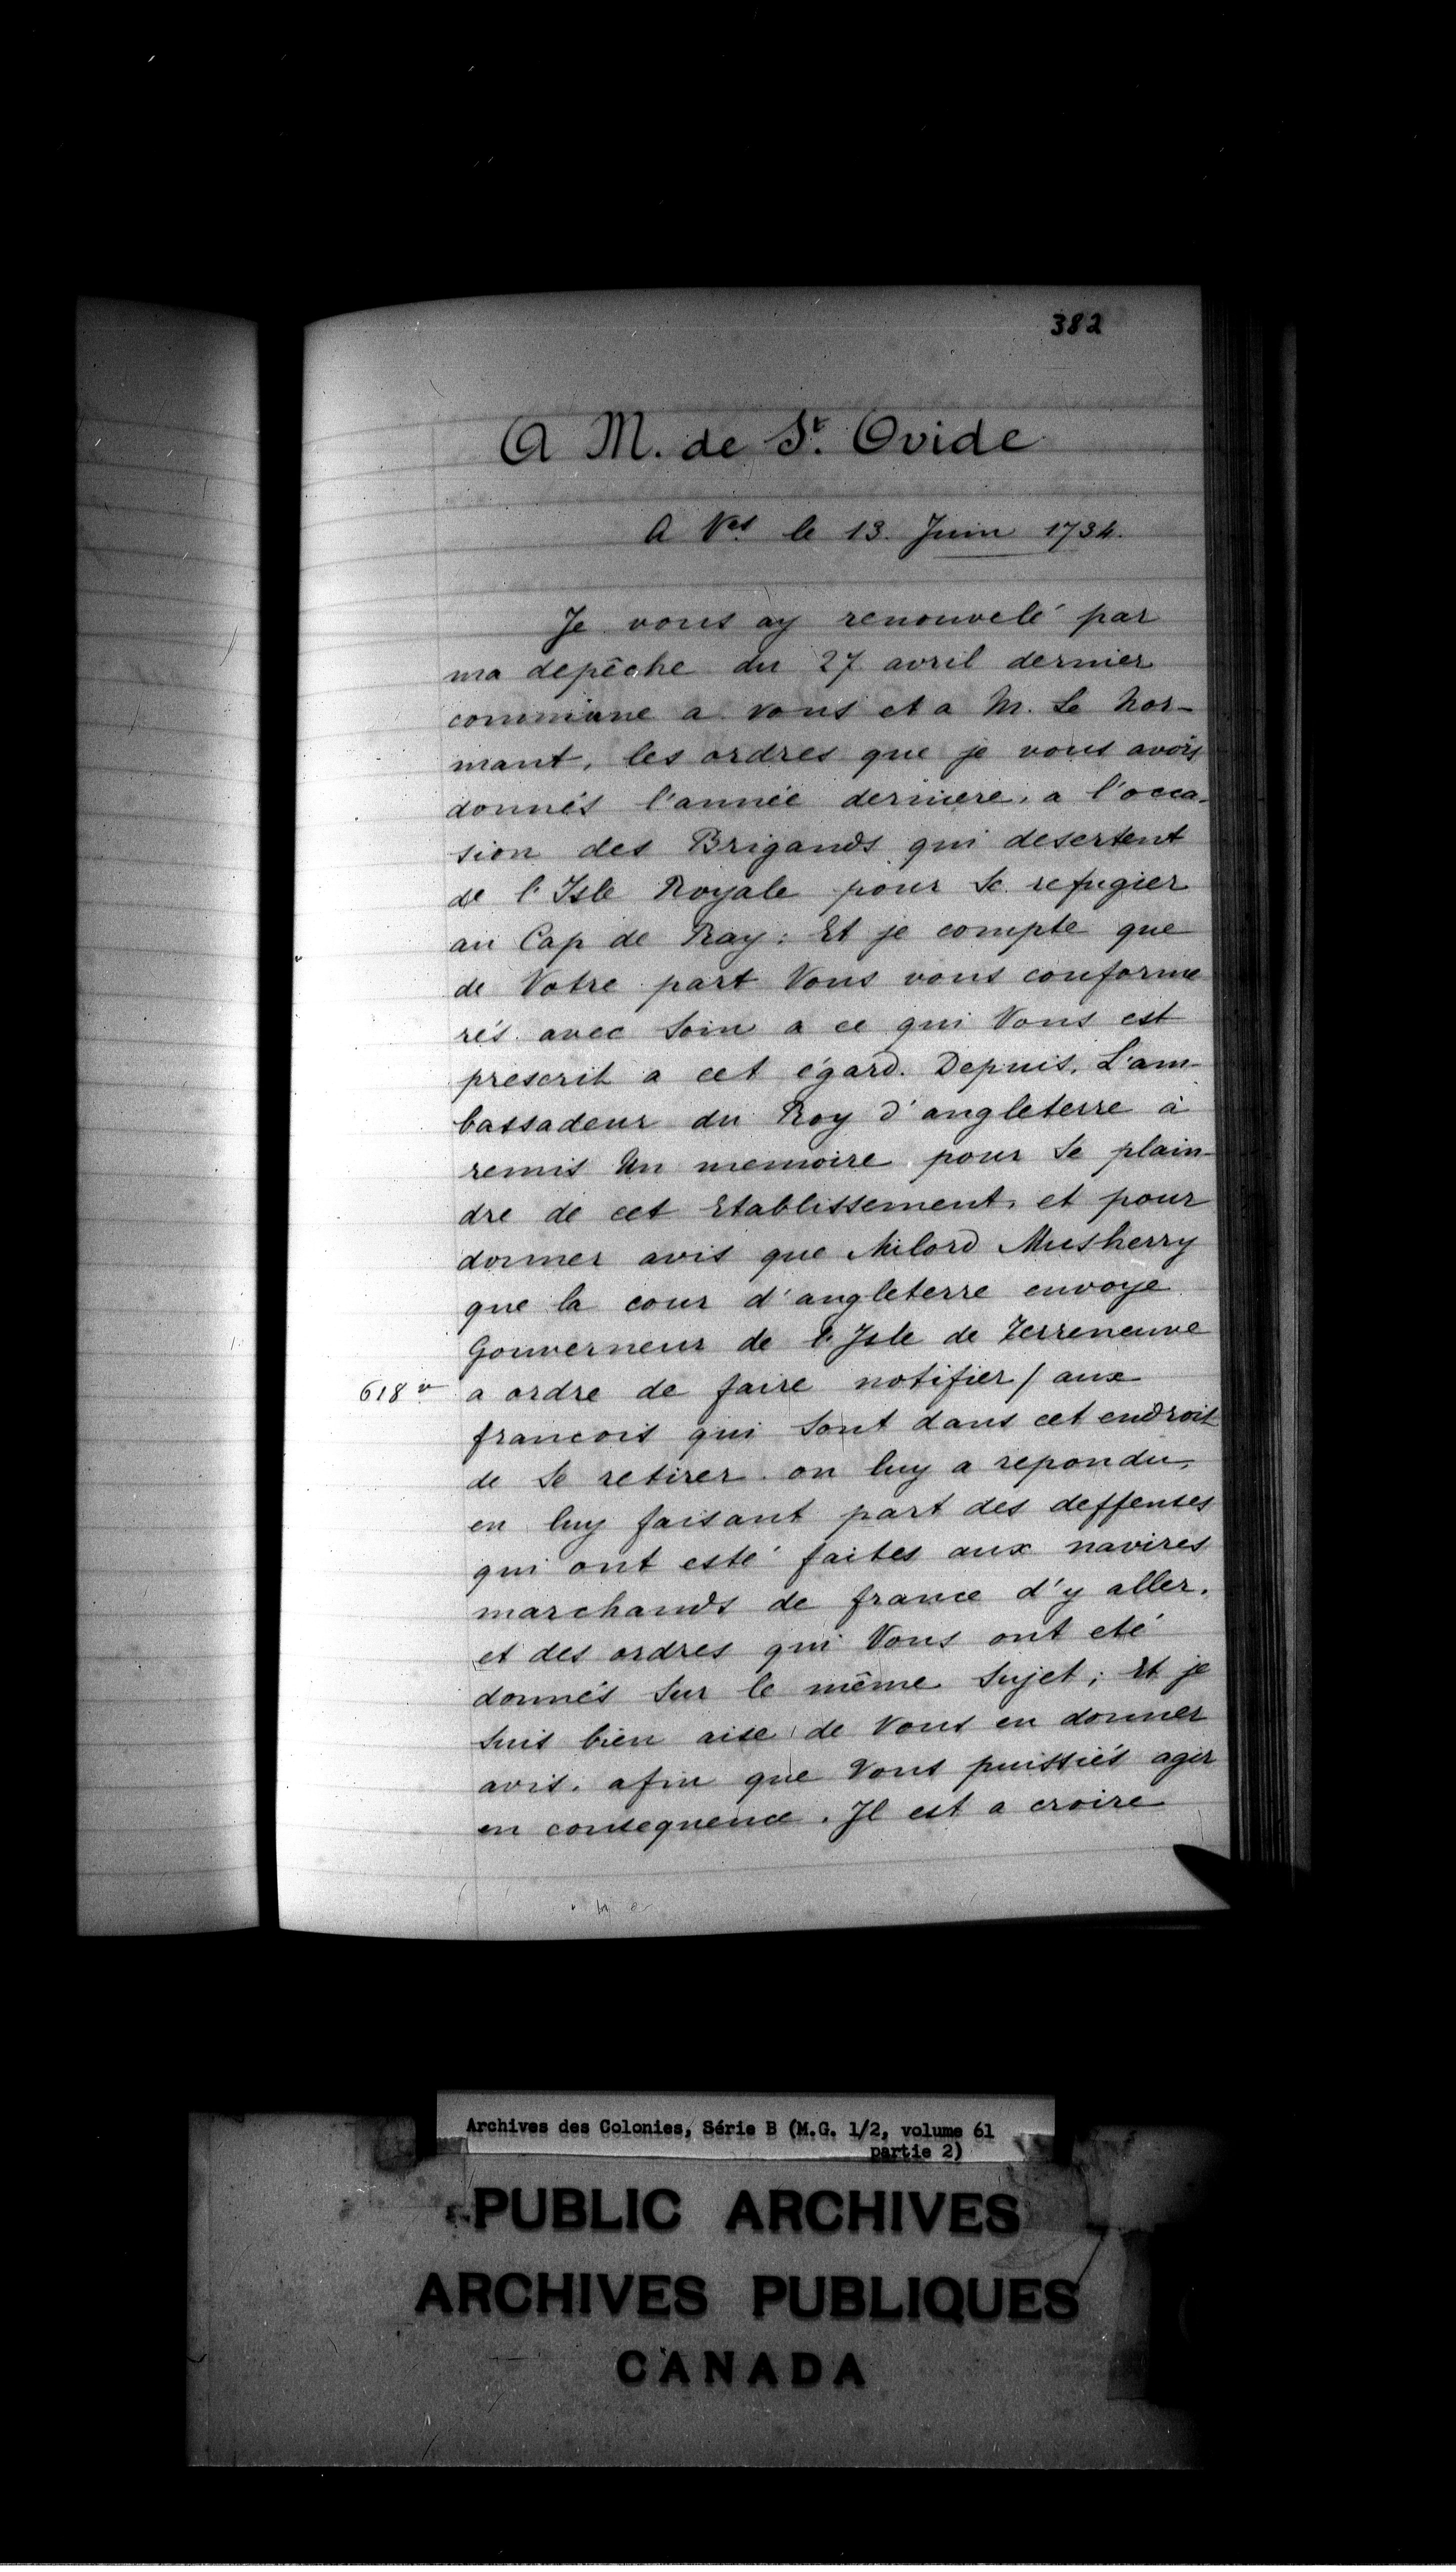 382
A M. de St. Ovide
A Vles le 13. Juin 1734.
Je vous ay renouvelé par
ma depêche du 27 avril dernier
commune a vous et a M. Le Nor-
mant, les ordres que je vous avois
donnés l'année derniere, a l'occa-
sion des Brigands qui desertent
de l'Isle Royale pour Se refugier
au Cap de Ray; Et je compte que
de Votre part Vous vous conforme
rés avec Soin a ce qui Vous est
prescrit a cet égard. Depuis, L'am-
bassadeur du Roy d'angleterre à
remis Un memoire pour Se plain-
dre de cet Etablissement, et pour
donner avis que Milord Musherry
que la cour d'angleterre envoye
Gouverneur de l'Isle de Terreneuve
618 v. a ordre de faire notifier / aux
francois qui Sont dans cet endroit
de Se retirer. on luy a repondu,
en luy faisant part des deffenses
qui ont esté faites aux navires
marchands de france d'y aller,
et des ordres qui Vous ont eté
donnés Sur le même Sujet; Et je
Suis bien aise de Vous en donner
avis, afin que Vous puissiés agir
en consequence. Il est a croire
Archives des Colonies, Série B (M.G. 1/2, volume 61
partie 2)
PUBLIC ARCHIVES
ARCHIVES PUBLIQUES
CANADA